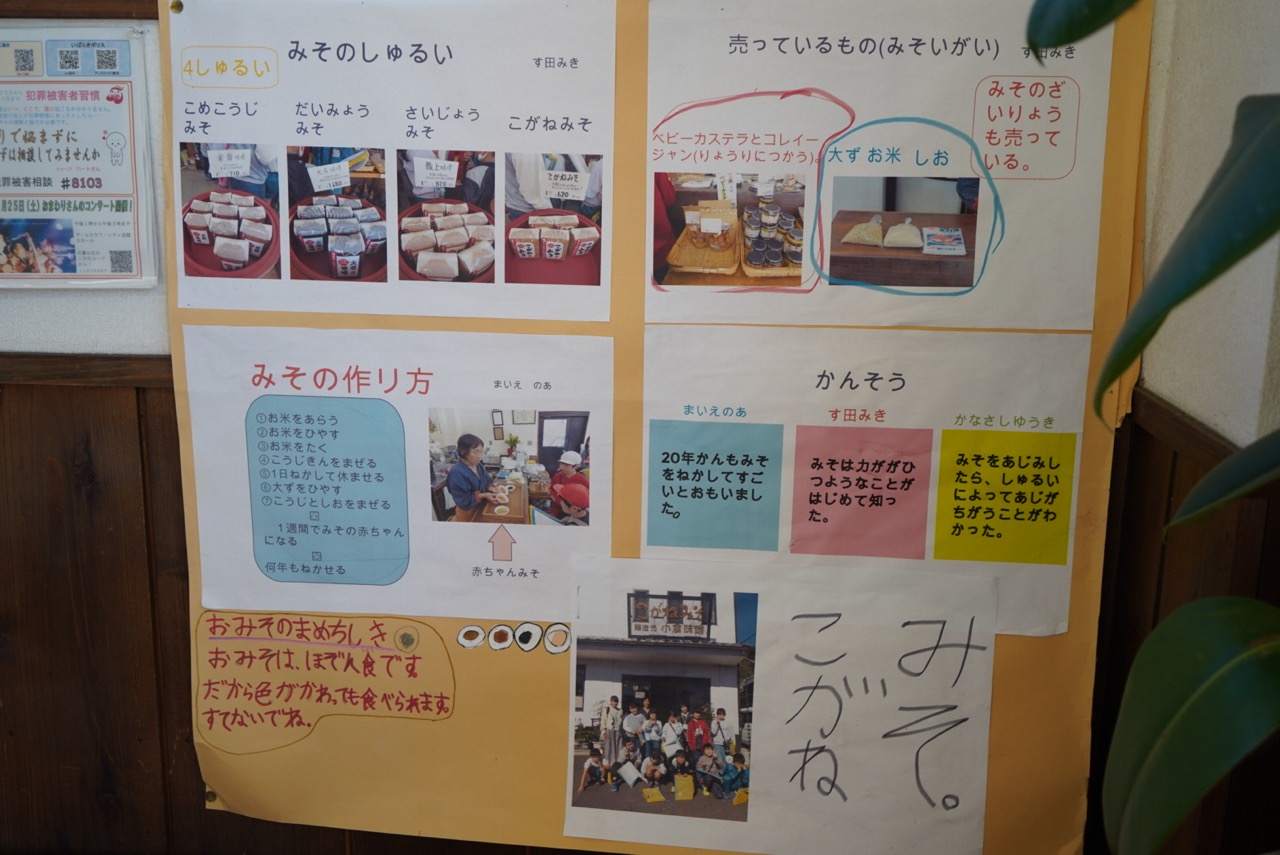 いばらきポリス
犯罪被害者週間
で悩まずに
ずは相談してみませんか
罪被害相談 #8103
月25日(土)おまわりさんのコンサート開催!
みそのしゅるい
4しゅるい
す田みき
こめこうじ
みそ
だいみょう
みそ
さいじょう
みそ
こがねみそ
売っているもの(みそいがい)
す田みき
みそのざ
いりょう
も売って
いる。
ベビーカステラとコレイー
ジャン(りょうりにつかう)。
大ずお米 しお
みその作り方
まいえ のあ
①お米をあらう
②お米をひやす
③お米をたく
④こうじきんをまぜる
⑤1日ねかして休ませる
⑥大ずをひやす
⑦こうじとしおをまぜる
1週間でみその赤ちゃん
になる
何年もねかせる
赤ちゃんみそ
かんそう
まいえのあ
20年かんもみそ
をねかしてすご
いとおもいまし
た。
す田みき
みそは力ががひ
つようなことが
はじめて知っ
た。
かなさしゆうき
みそをあじみし
たら、しゅるい
によってあじが
ちがうことがわ
かった。
おみそのまめちしき
おみそは、ほぞん食です
だから色がかわっても食べられます。
すてないでね。
こがねみそ
小室味噌
みそ。
こがね